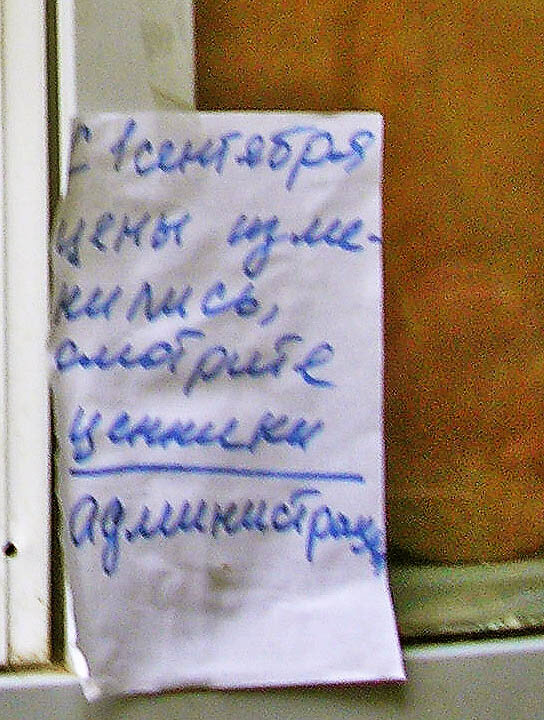 С 1 сентября
цены изме-
нились,
смотрите
ценники
администрац